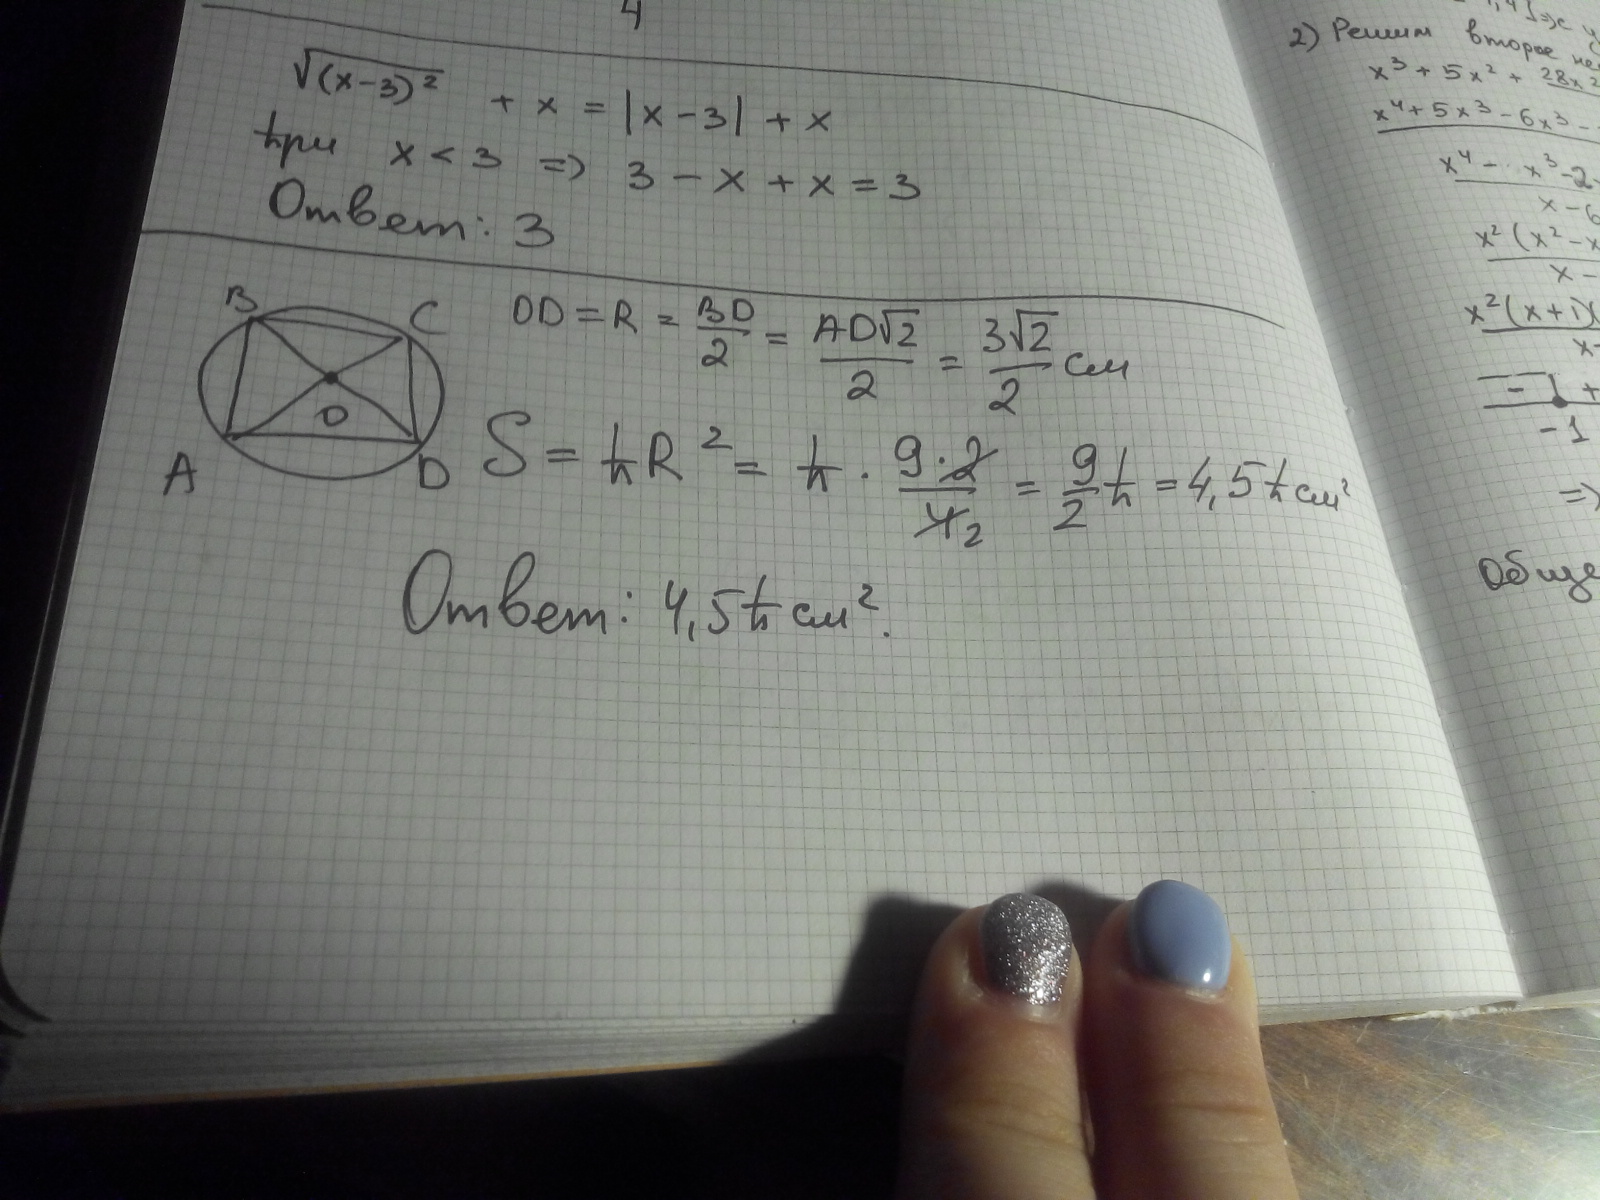 4
√(x-3)² + x = |x-3| + x
при x < 3 => 3 - x + x = 3
Ответ: 3
B C
O
A D
OD = R = BD/2 = AD√2/2 = 3√2/2 см
S = πR² = π · 9·2/4 2 = 9/2 π = 4,5π см²
Ответ: 4,5π см².
2) Решим второе
x³ + 5x² + 28x²
x⁴ + 5x³ - 6x³ -
x⁴ - x³ - 2
x - 6
x² (x² - x
x -
x² (x+1)(
x
- +
-1
=>